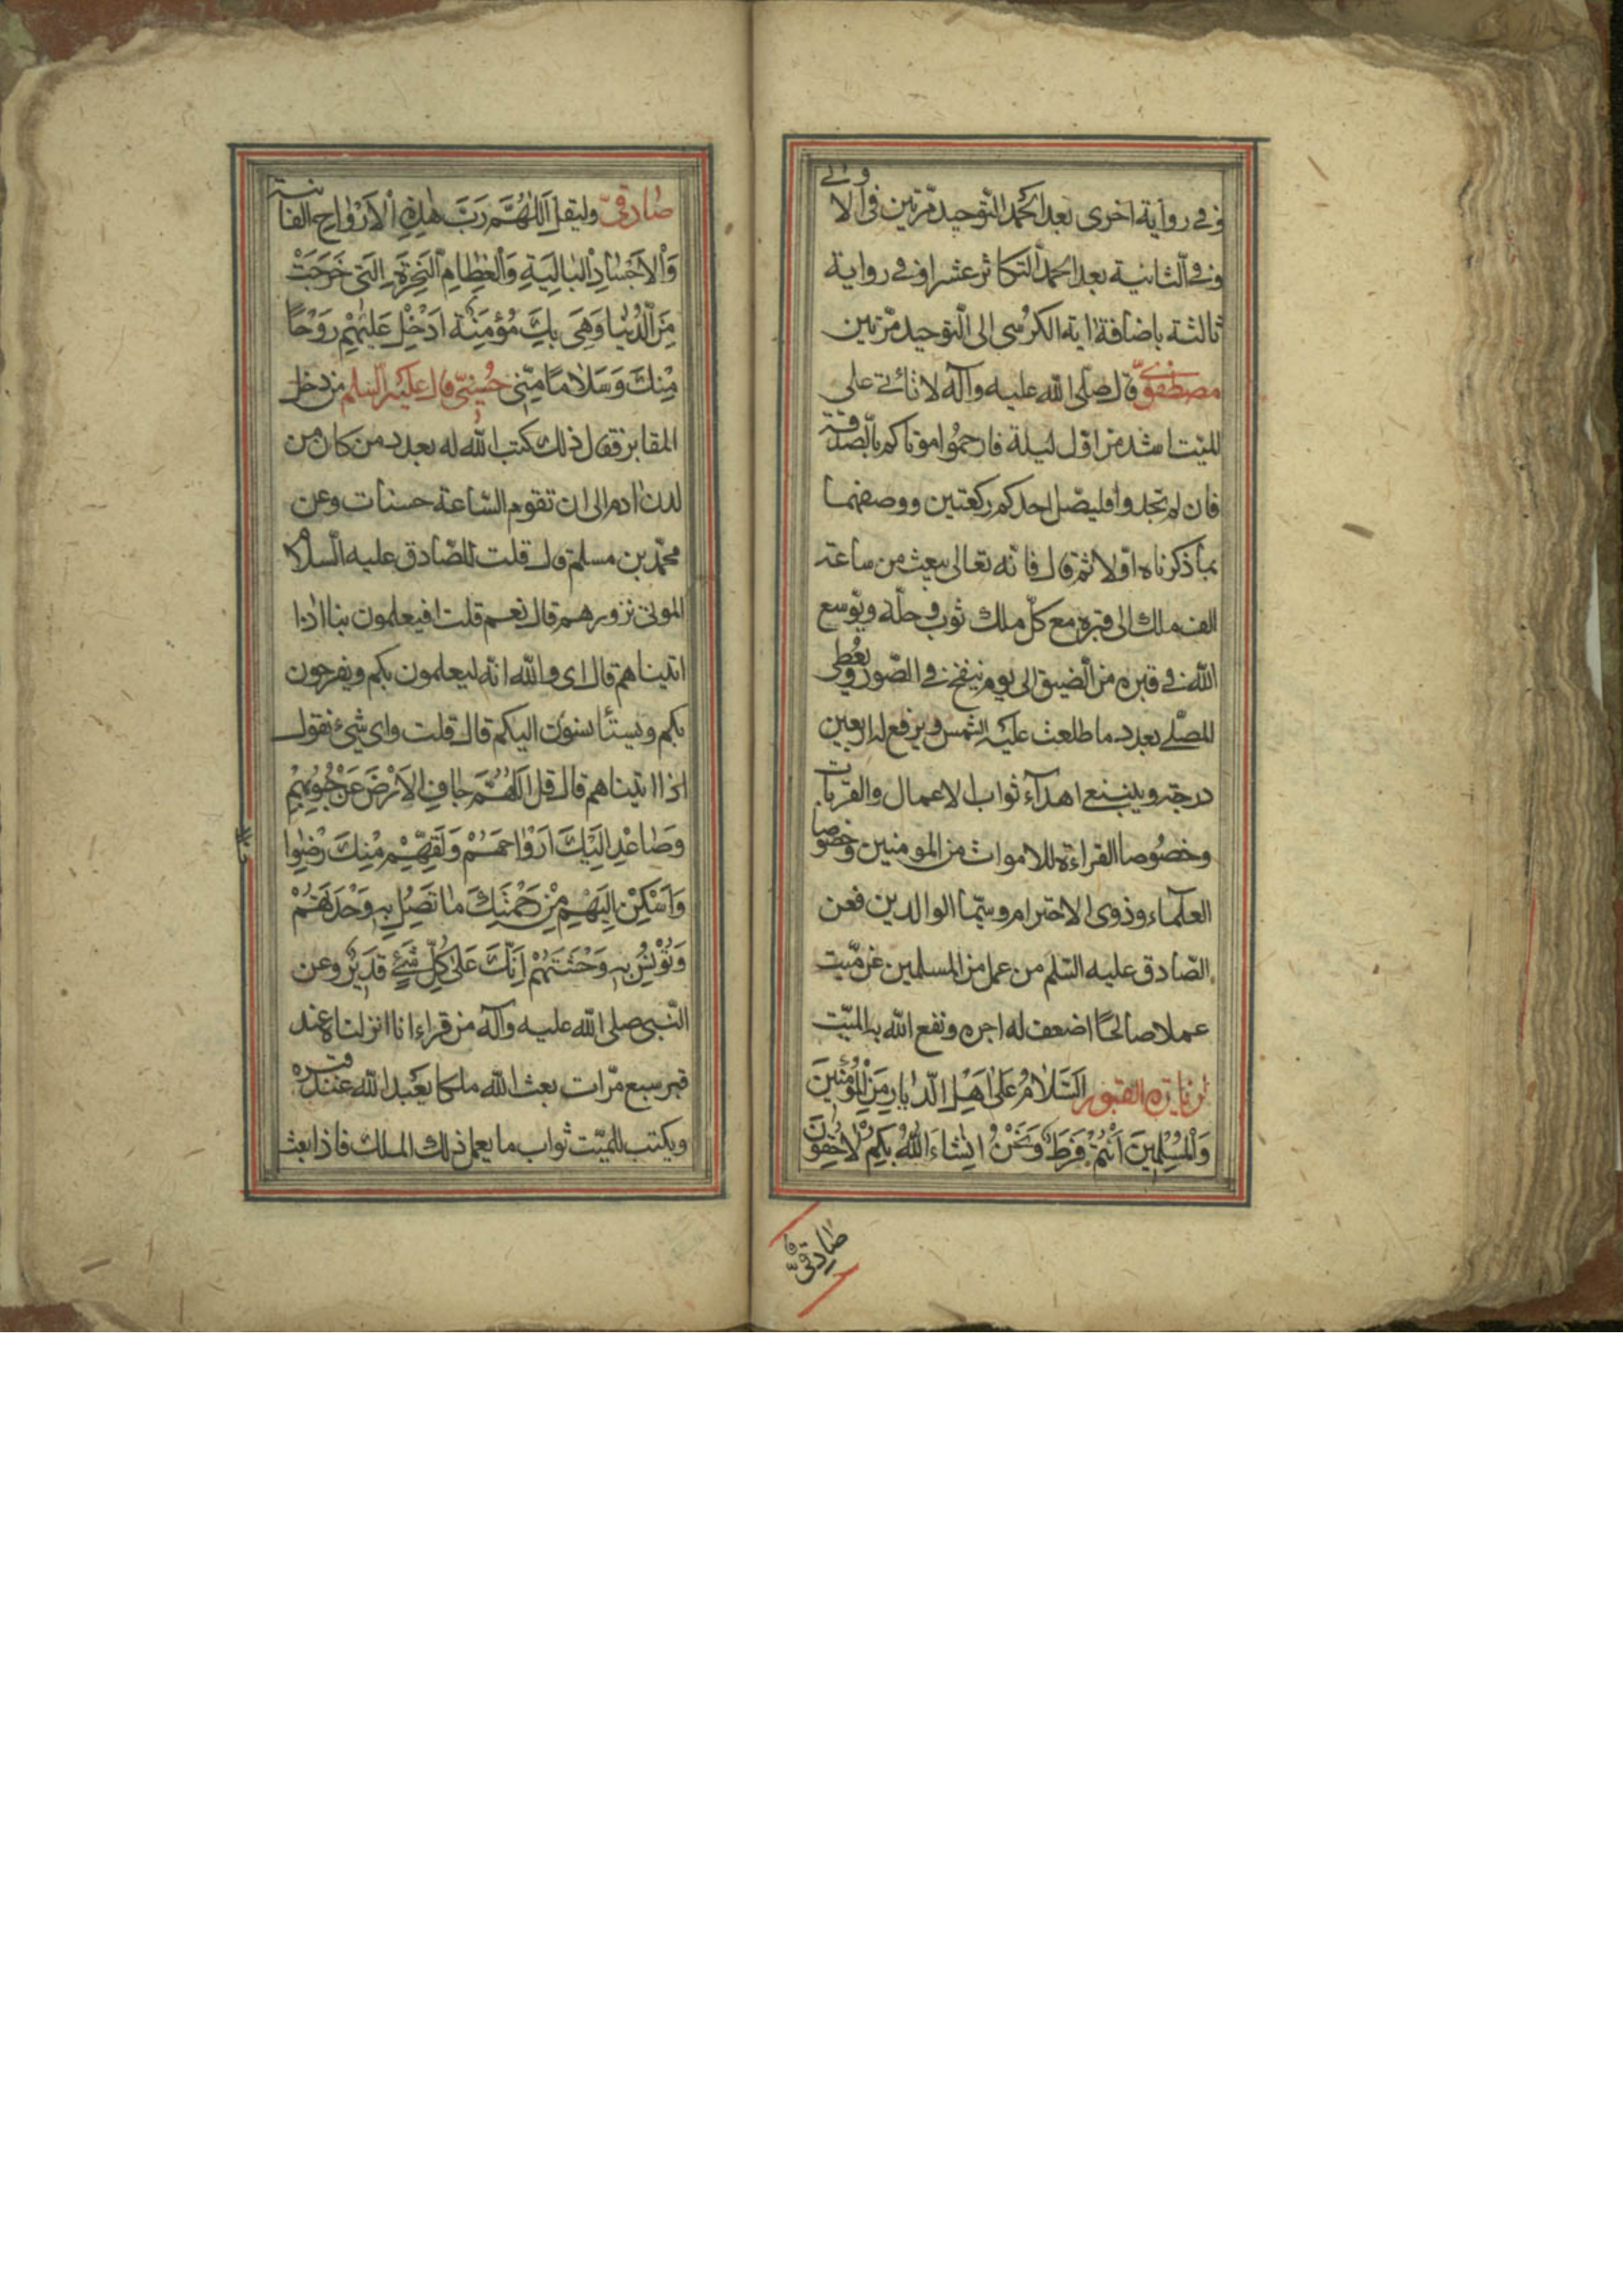 وفي رواية اخرى بعد الحمد التوحيد مرّتين في الاولى
وفي الثانية بعد الحمد التكاثر عشرا وفي رواية
ثالثة باضافة اية الكرسى الى التوحيد مرّتين
مصطفوىّ قال صلى الله عليه وآله لا تأتى على
الميّت اشد من اوّل ليلة فارحموا موتاكم بالصّدقة
فان لم تجدوا فليصّل احدكم ركعتين ووصفهما
بما ذكرناه اوّلا ثم قال فانّه تعالى يبعث من ساعته
الف ملك الى قبره مع كلّ ملك ثوب وحلّه ويوسع
الله في قبره من الضيق الى يوم ينفخ في الصّور ويعطى
المصلّى بعدد ما طلعت عليه الشمس ويرفع له اربعين
درجة وينبغي اهدآء ثواب الاعمال والقربات
وخصوصا القراءة للاموات من المومنين وخصوصا
العلمآء وذوى الاحترام وسيّما الوالدين فعن
الصّادق عليه السّلم من عمل من المسلمين عن ميّت
عملا صالحًا اضعف له اجره ونفع الله به الميّت
زيارة القبور اَلسَّلَامُ عَلىٰ اَهْلِ الدِّيٰارِ مِنَ الْمُؤْمِنينَ
وَالْمُسْلِمينَ اَنْتُمْ فَرَطٌ وَنَحْنُ انِشاءَ اللهُ بِكُمْ لٰاحِقُونَ
صٰادِقىّ
صٰادقىّ وليقل اَللّٰهُمَّ رَبَّ هٰذِهِ الْاَرْوٰاحِ الفانية
وَالْاَجْسٰادِ الْبٰالِيَةِ وَالْعِظٰامِ النَّخِرَةِ الَّتى خَرَجَتْ
مِنَ الدُّنْيٰا وَهِىَ بِكَ مُؤْمِنَة اَدْخِلْ عَلَيْهِمْ رَوْحًا
مِنْكَ وَسَلٰامًا مِنّى حُسَينىّ قال عليه السلم من دخل
المقابر فقال ذلك كتب الله له بعدد من كان من
لدن ادم الى ان تقوم السّاعة حسنات وعن
محمّد بن مسلم قال قلت للصّادق عليه السّلام
الموتى نزورهم قال نعم قلت افيعلمون بنا اذا
اتيناهم قال اى والله انّه ليعلمون بكم ويفرحون
بكم ويستأنسون اليكم قال قلت واى شئ نقول
اذا اتيناهم قال قل اَللّٰهُمَّ جٰافِ الْاَرْضَ عَنْ جُنُوبِهِمْ
وَصٰاعِدْ اِلَيْكَ اَرْوٰاحَهُمْ وَلَقِّهِمْ مِنْكَ رِضْوٰا
وَاَسْكِنْ اِلَيْهِمْ مِنْ رَحْمَتِكَ مٰا تَصِلُ بِهِ وَحْدَتَهُمْ
وَتُؤْنِسُ بِهِ وَحْشَتَهُمْ اِنَّكَ عَلىٰ كُلِّ شَئٍ قَديرٌ وعن
النّبى صلى الله عليه وآله من قراء انا انزلناه عند
قبر سبع مرّات بعث الله ملكا يعبد الله عند قبره
ويكتب للميّت ثواب ما يعمل ذلك الملك فاذا بعث